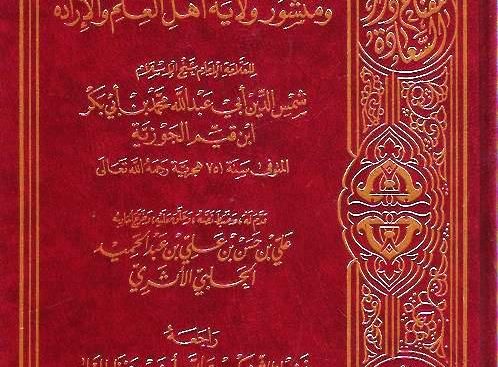 ومنشور ولاية أهل العلم والإرادة
للعلامة الإمام شيخ الإسلام
شمس الدين أبي عبد الله محمد بن أبي بكر
ابن قيم الجوزية
المتوفى سنة ٧٥١ هجرية رحمه الله تعالى
قدم له، وضبط نصه، وعلق عليه، وخرج أحاديثه
علي بن حسن بن علي بن عبد الحميد
الحلبي الأثري
راجعه
مفتاح دار
السعادة